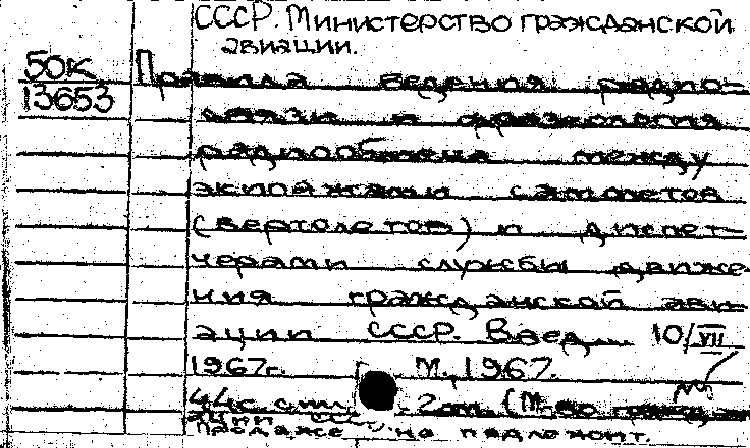 СССР. Министерство гражданской
авиации.
50к
13653
Правила ведения радио-
связи и фразеология
радиообмена между
экипажами самолетов
(вертолетов) и диспет-
черами службы движе
ния гражданской ави
ации СССР. Введ. 10/VII
1967г. М., 1967.
44с. с илл. 2 от. (М-во гражд. ави
ации СССР).
Продаже не подлежит.